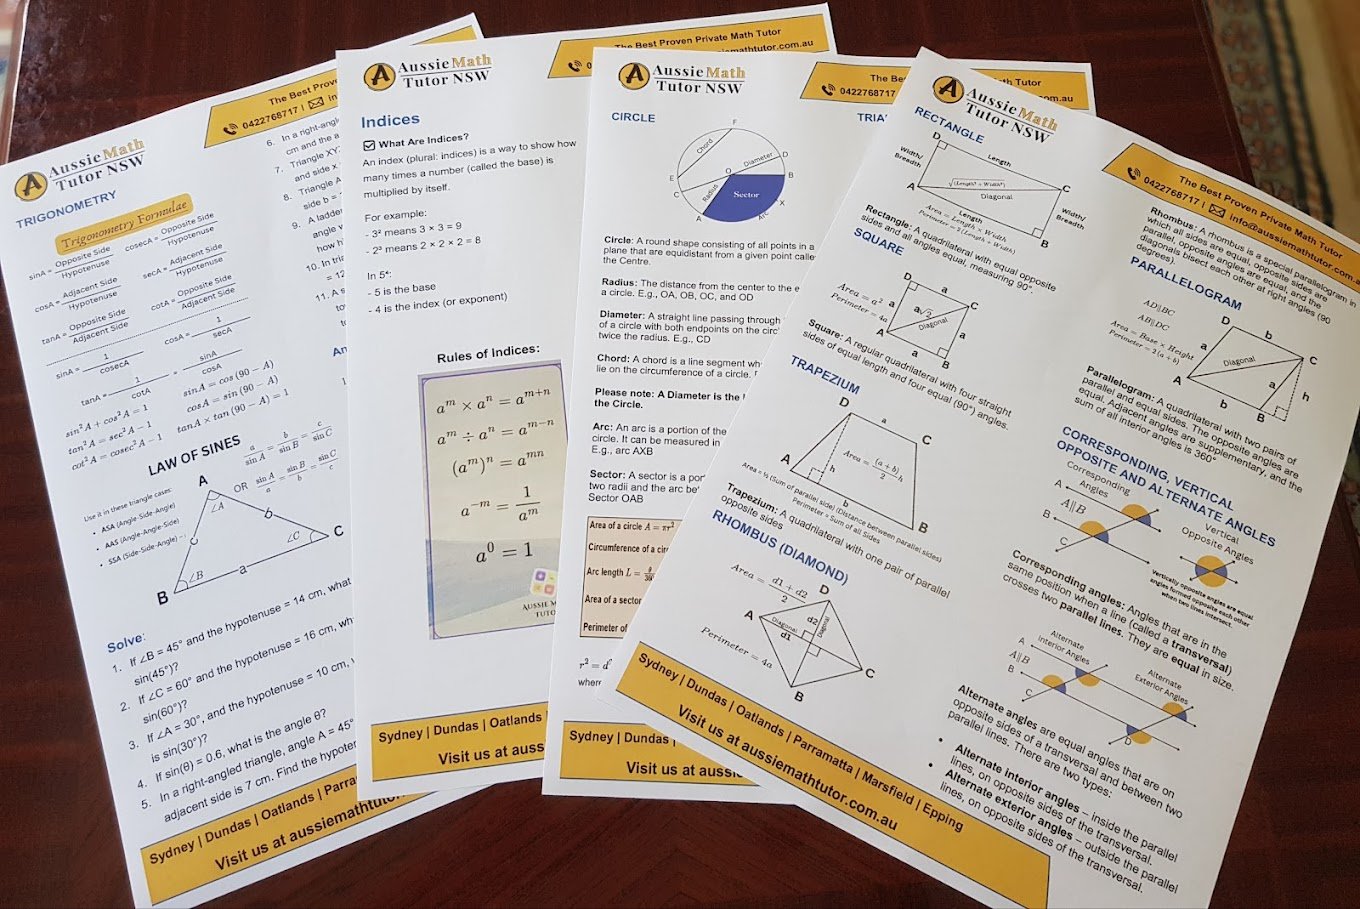 Aussie Math
Tutor NSW
The Best Proven
0422768717 |
TRIGONOMETRY
Trigonometry Formulae
sinA = Opposite Side / Hypotenuse
cosecA = Opposite Side / Hypotenuse
cosA = Adjacent Side / Hypotenuse
secA = Adjacent Side / Hypotenuse
tanA = Opposite Side / Adjacent Side
cotA = Opposite Side / Adjacent Side
sinA = 1 / cosecA
cosA = 1 / secA
tanA = 1 / cotA
= sinA / cosA
sin²A + cos²A = 1
sinA = cos (90 − A)
tan²A = sec²A − 1
cosA = sin (90 − A)
cot²A = cosec²A − 1
tanA × tan (90 − A) = 1
LAW OF SINES
a / sin A = b / sin B = c / sin C
OR sin A / a = sin B / b = sin C / c
Use it in these triangle cases:
• ASA (Angle-Side-Angle)
• AAS (Angle-Angle-Side)
• SSA (Side-Side-Angle) –
A
∠A
b
c
∠C
C
∠B
B
a
Solve:
1. If ∠B = 45° and the hypotenuse = 14 cm, what
sin(45°)?
2. If ∠C = 60° and the hypotenuse = 16 cm, wh
sin(60°)?
3. If ∠A = 30°, and the hypotenuse = 10 cm,
is sin(30°)?
4. If sin(θ) = 0.6, what is the angle θ?
5. In a right-angled triangle, angle A = 45°
adjacent side is 7 cm. Find the hypoter
6. In a right-angl
cm and the a
7. Triangle XY
and side x
8. Triangle A
side b =
9. A ladde
angle
how h
10. In tri
= 12
11. A s
An
Sydney | Dundas | Oatlands | Parra
Visit us at aussiemathtuto
Aussie Math
Tutor NSW
The Best Proven Private Math Tutor
siemathtutor.com.au
Indices
What Are Indices?
An index (plural: indices) is a way to show how
many times a number (called the base) is
multiplied by itself.
For example:
- 3² means 3 × 3 = 9
- 2³ means 2 × 2 × 2 = 8
In 5⁴:
- 5 is the base
- 4 is the index (or exponent)
Rules of Indices:
aᵐ × aⁿ = aᵐ⁺ⁿ
aᵐ ÷ aⁿ = aᵐ⁻ⁿ
(aᵐ)ⁿ = aᵐⁿ
a⁻ᵐ = 1 / aᵐ
a⁰ = 1
AUSSIE M
TUTO
Sydney | Dundas | Oatlands
Visit us at auss
Aussie Math
Tutor NSW
The Be
0422768717
CIRCLE
TRIA
F
Chord
E
Diameter
D
O
B
C
Radius
Sector
A
Arc
X
Circle: A round shape consisting of all points in a
plane that are equidistant from a given point calle
the Centre.
Radius: The distance from the center to the e
a circle. E.g., OA, OB, OC, and OD
Diameter: A straight line passing through
of a circle with both endpoints on the circ
twice the radius. E.g., CD
Chord: A chord is a line segment wh
lie on the circumference of a circle.
Please note: A Diameter is the
the Circle.
Arc: An arc is a portion of the
circle. It can be measured in
E.g., arc AXB
Sector: A sector is a por
two radii and the arc be
Sector OAB
Area of a circle A = πr²
Circumference of a circ
Arc length L = θ
Area of a sector
Perimeter of
r² = d
wher
Sydney | Dundas
Visit us at aussi
Aussie Math
Tutor NSW
The Best Proven Private Math Tutor
0422768717 | info@aussiemathtutor.c
RECTANGLE
D
Length
Width/
Breadth
√(Length² + Width²)
Diagonal
C
A
Length
Width/
Breadth
B
Area = Length × Width
Perimeter = 2(Length + Width)
Rectangle: A quadrilateral with equal opposite
sides and all angles equal, measuring 90°.
SQUARE
Area = a²
Perimeter = 4a
D
a
C
a
a√2
Diagonal
a
A
a
B
Square: A regular quadrilateral with four straight
sides of equal length and four equal (90°) angles.
TRAPEZIUM
D
a
C
Area = (a + b) / 2 h
h
A
b
B
Area = ½ (Sum of parallel side) (Distance between parallel sides)
Perimeter = Sum of all Sides
Trapezium: A quadrilateral with one pair of parallel
opposite sides
RHOMBUS (DIAMOND)
Area = d1 + d2 / 2
Perimeter = 4a
D
A
Diagonal
d1
d2
Diagonal
C
B
Rhombus: A rhombus is a special parallelogram in
which all sides are equal, opposite sides are
parallel, opposite angles are equal, and the
diagonals bisect each other at right angles (90
degrees).
PARALLELOGRAM
AD∥BC
AB∥DC
Area = Base × Height
Perimeter = 2(a + b)
D
b
C
a
Diagonal
a
h
A
b
B
Parallelogram: A quadrilateral with two pairs of
parallel and equal sides. The opposite angles are
equal. Adjacent angles are supplementary, and the
sum of all interior angles is 360°
CORRESPONDING, VERTICAL
OPPOSITE AND ALTERNATE ANGLES
Corresponding
Angles
A
A∥B
B
C
Vertical
Opposite Angles
Vertically opposite angles are equal
angles formed opposite each other
when two lines intersect.
Corresponding angles: Angles that are in the
same position when a line (called a transversal)
crosses two parallel lines. They are equal in size.
Alternate
Interior Angles
A
A∥B
B
C
Alternate
Exterior Angles
D
Alternate angles are equal angles that are on
opposite sides of a transversal and between two
parallel lines. There are two types:
• Alternate interior angles – inside the parallel
lines, on opposite sides of the transversal.
• Alternate exterior angles – outside the parallel
lines, on opposite sides of the transversal.
Sydney | Dundas | Oatlands | Parramatta | Marsfield | Epping
Visit us at aussiemathtutor.com.au